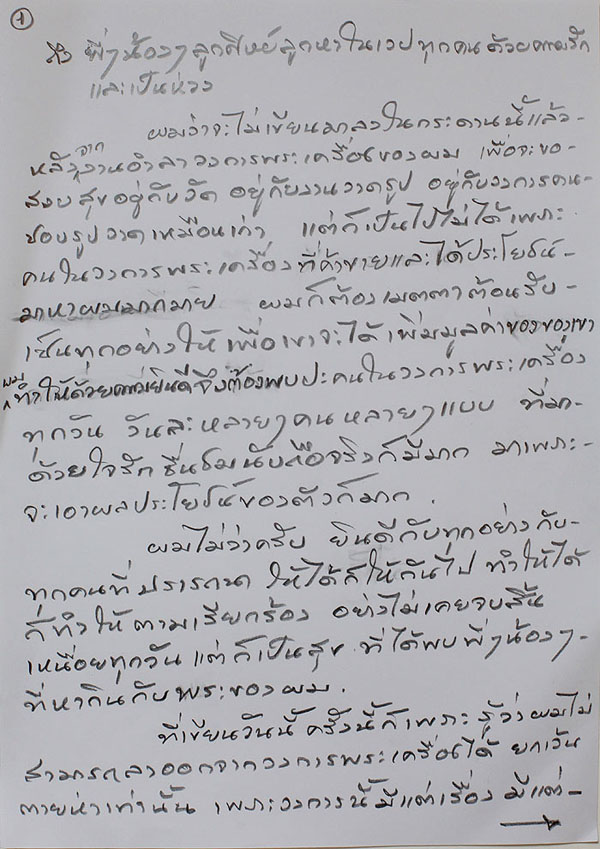 1
ถึง พี่ๆน้องๆลูกศิษย์ลูกหาในเวปทุกคนด้วยความรัก
และเป็นห่วง
ผมว่าจะไม่เขียนมาลงในกระดานนี้แล้ว-
หลังจากงานอำลาวงการพระเครื่องของผม เพื่อจะขอ-
สงบสุขอยู่กับวัด อยู่กับงานวาดรูป อยู่กับวงการคน-
ชอบรูปวาดเหมือนเก่า แต่ก็เป็นไปไม่ได้เพราะ
คนในวงการพระเครื่อง ที่ค้าขายและได้ประโยชน์-
มาหาผมมากมาย ผมก็ต้องเมตตาต้อนรับ-
เซ็นทุกอย่างให้ เพื่อเขาจะได้เพิ่มมูลค่าของของเขา
ผมทำให้ด้วยความยินดีจึงต้องพบปะคนในวงการพระเครื่อง
ทุกวัน วันละหลายๆคน หลายๆแบบ ที่มา-
ด้วยใจรัก ชื่นชมนับถือจริงก็มีมาก มาเพราะ-
จะเอาผลประโยชน์ของตัวก็มาก.
ผมไม่ว่าครับ ยินดีกับทุกอย่างกับ-
ทุกคนที่ปรารถนา ให้ได้ก็ให้กันไป ทำให้ได้
ก็ทำให้ตามเรียกร้อง อย่างไม่เคยจบสิ้น
เหนื่อยทุกวัน แต่ก็เป็นสุข ที่ได้พบพี่ๆน้องๆ-
ที่หากินกับพระของผม.
ที่เขียนวันนี้ ครั้งนี้ก็เพราะ รู้ว่าผมไม่
สามารถลาออกจากวงการพระเครื่องได้ ยกเว้น
ตายห่าเท่านั้น เพราะวงการนี้ มีแต่เรื่อง มีแต่-